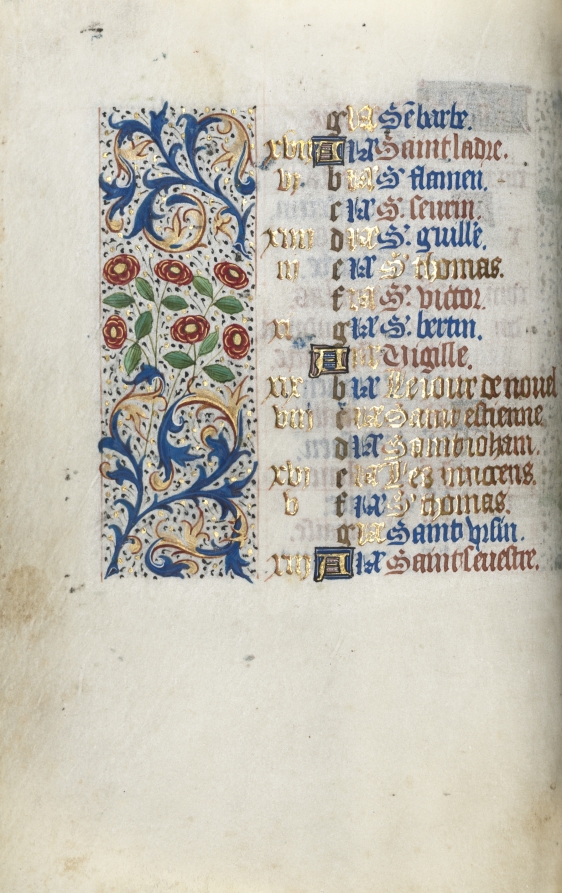 g Sẽ barbe.
xvii A Saint ladre.
vi b S. flamen.
c S. seurin.
xiiii d S. guille.
iii e S. thomas.
f S. victor.
xi g S. bertin.
A Vigille.
xix b Le iour de nouel
viii c Saint estienne
d Saint iohan.
xvi e Les innocens.
v f S. thomas.
g Saint vrsin.
xiii A Saint seuestre.